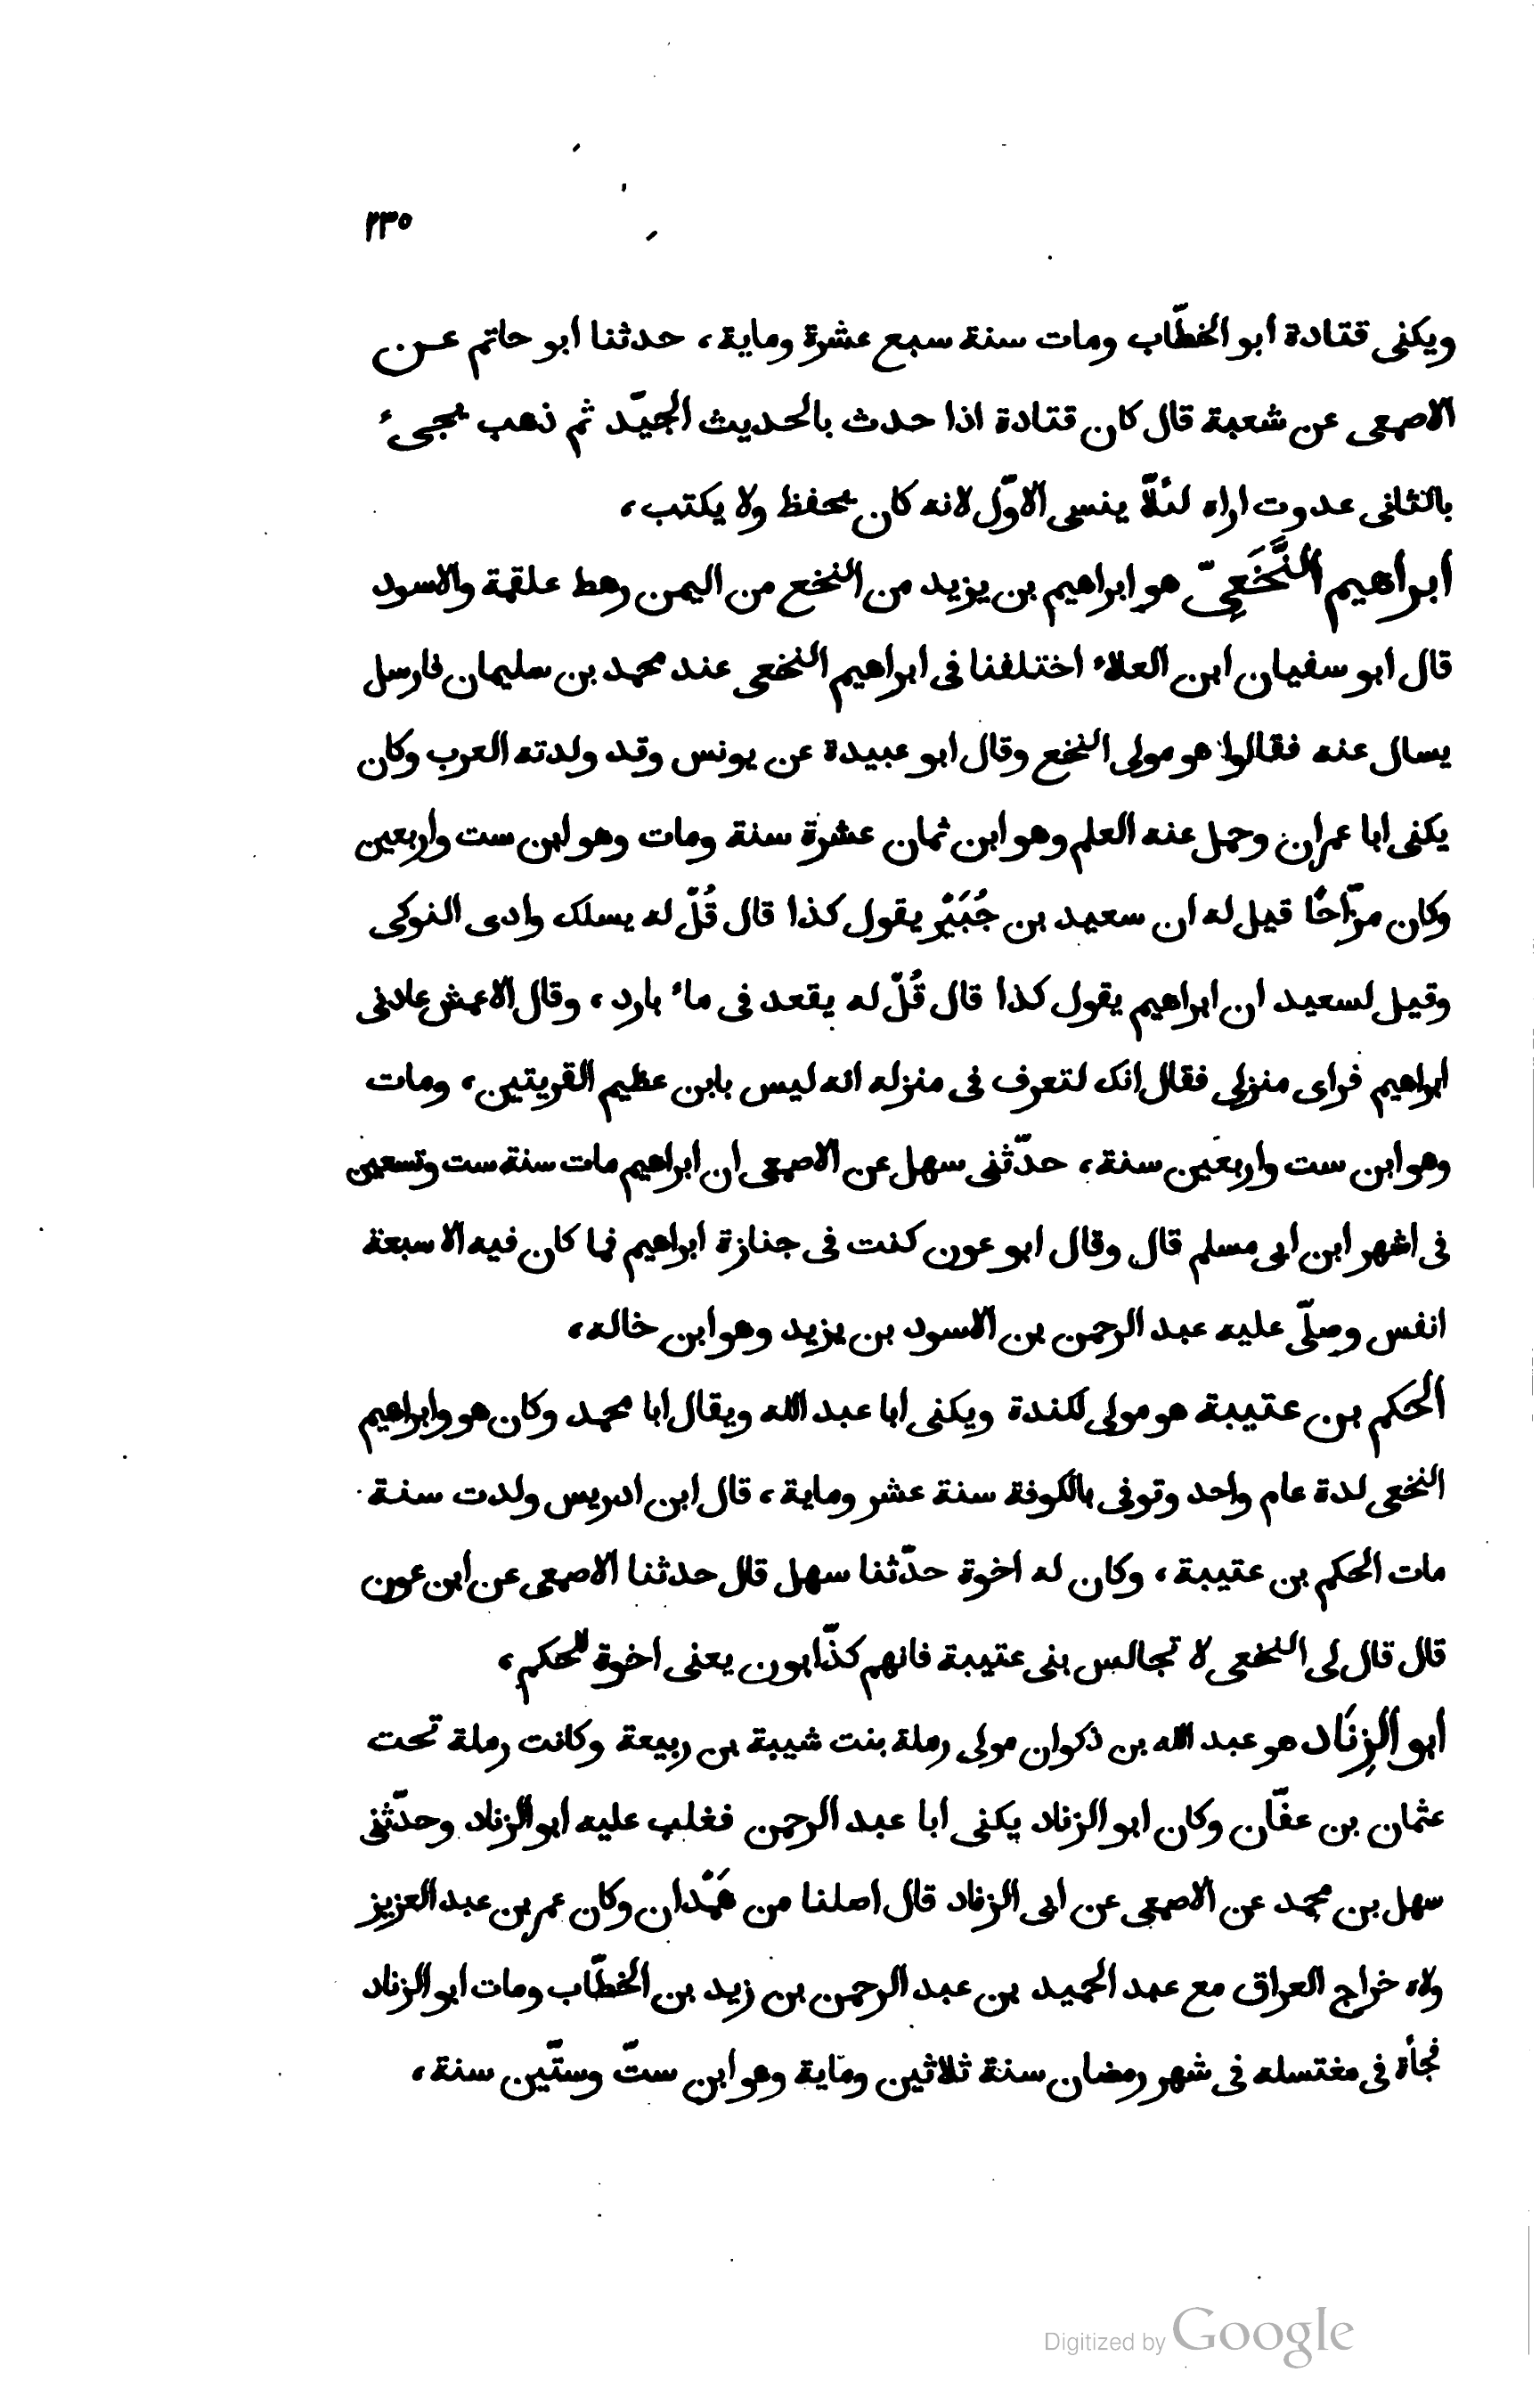 ٢٣٥
ويكنى قتادة ابو الخطّاب ومات سنة سبع عشرة وماية، حدثنا ابو حاتم عن
الاصمعى عن شعبة قال كان قتادة اذا حدث بالحديث الجيّد ثم ذهب يجىء
بالثانى عدوت اراه لئلّا ينسى الاوّل لانه كان يحفظ ولا يكتب،
ابراهيم النَّخَعِىّ هو ابراهيم بن يزيد من النخع من اليمن رهط علقمة والاسود
قال ابو سفيان ابن العلاء اختلفنا فى ابراهيم النخعى عند محمد بن سليمان فارسل
يسال عنه فقالوا هو مولى النخع وقال ابو عبيدة عن يونس وقد ولدته العرب وكان
يكنى ابا عمران وحمل عنه العلم وهو ابن ثمان عشرة سنة ومات وهو ابن ست واربعين
وكان مزّاحًا قيل له ان سعيد بن جُبَيْر يقول كذا قال قُلّ له يسلك وادى النوكى
وقيل لسعيد ان ابراهيم يقول كذا قال قُلّ له يقعد فى ماء بارد، وقال الاعمش عادنى
ابراهيم فراى منزلى فقال انك لتعرف فى منزله انه ليس بابن عظيم القريتين، ومات
وهو ابن ست واربعين سنة، حدّثنى سهل عن الاصمعى ان ابراهيم مات سنة ست وتسعين
فى اشهر ابن ابى مسلم قال وقال ابو عون كنت فى جنازة ابراهيم فما كان فيه الا سبعة
انفس وصلّى عليه عبد الرحمن بن الاسود بن يزيد وهو ابن خاله،
الحكم بن عتيبة هو مولى لكندة ويكنى ابا عبد الله ويقال ابا محمد وكان هو وابراهيم
النخعى لدة عام واحد وتوفى بالكوفة سنة عشر وماية، قال ابن ادريس ولدت سنة
مات الحكم بن عتيبة، وكان له اخوة حدّثنا سهل قال حدثنا الاصمعى عن ابن عون
قال قال لى النخعى لا تجالس بنى عتيبة فانهم كذّابون يعنى اخوة للحكم،
ابو الزِنَاد هو عبد الله بن ذكوان مولى رملة بنت شيبة بن ربيعة وكانت رملة تحت
عثمان بن عفّان وكان ابو الزناد يكنى ابا عبد الرحمن فغلب عليه ابو الزناد وحدّثنى
سهل بن محمد عن الاصمعى عن ابى الزناد قال اصلنا من هَمْدان وكان عمر بن عبد العزيز
ولاه خراج العراق مع عبد الحميد بن عبد الرحمن بن زيد بن الخطّاب ومات ابو الزناد
فجأة فى مغتسله فى شهر رمضان سنة ثلاثين وماية وهو ابن ستّ وستّين سنة،
Digitized by Google